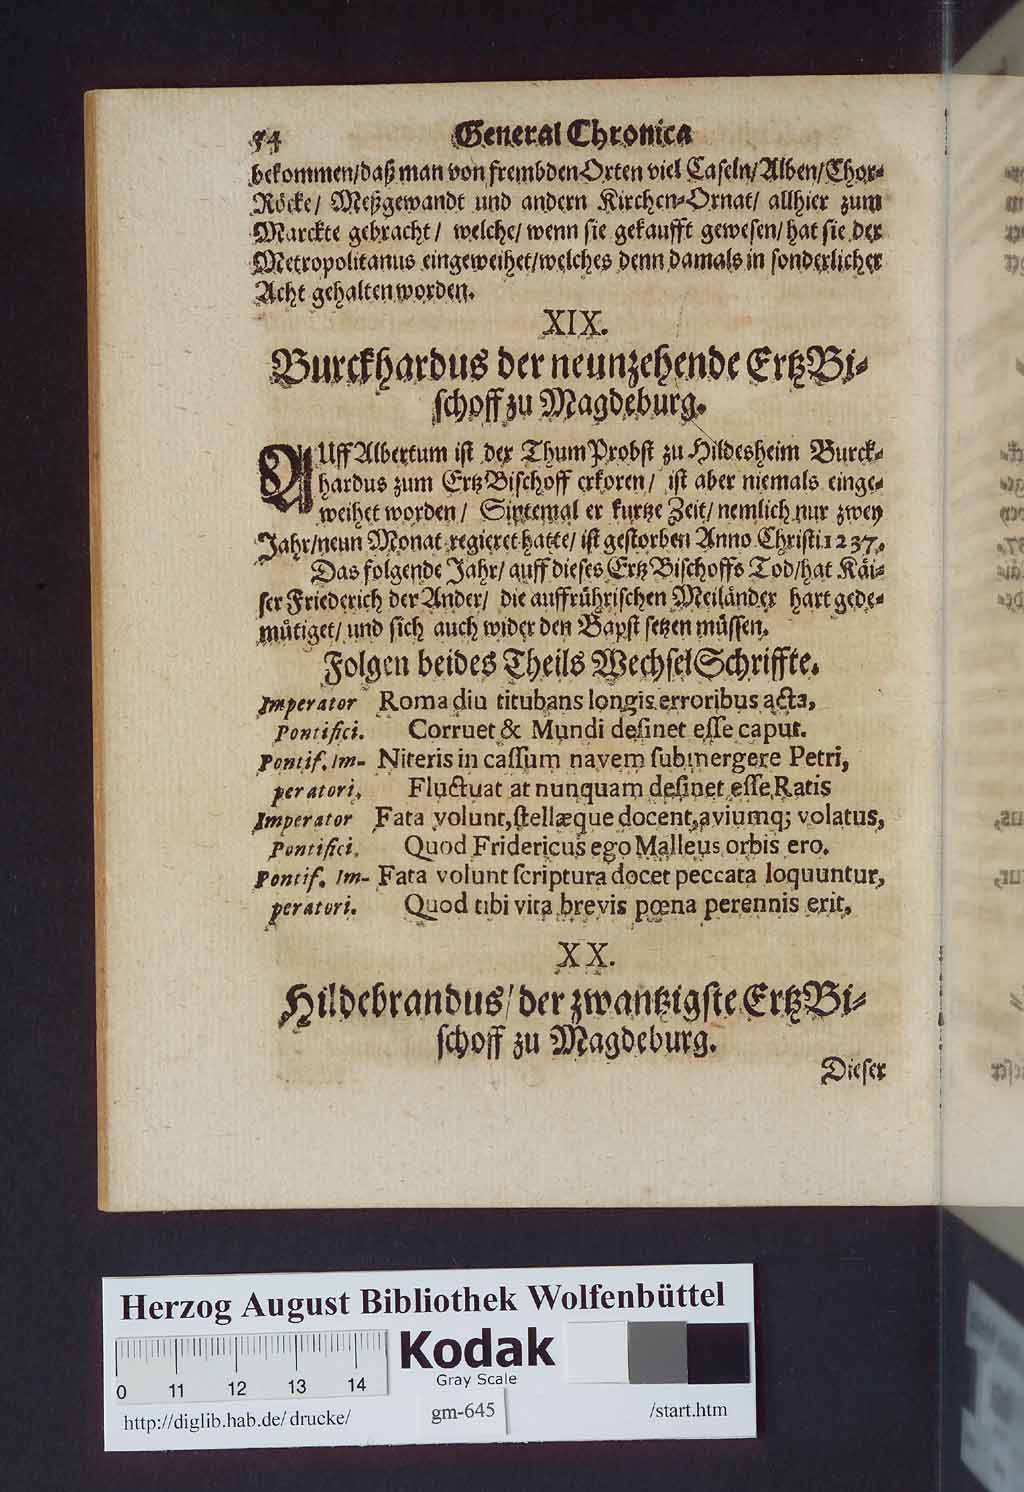 54 General Chronica
bekommen/daß man von frembden Orten viel Caseln/Alben/Chor-
Röcke/ Meßgewandt und andern Kirchen-Ornat/ allhier zum
Marckte gebracht/ welche/ wenn sie gekaufft gewesen/hat sie der
Metropolitanus eingeweihet/welches denn damals in sonderlicher
Acht gehalten worden.
XIX.
Burckhardus der neunzehende ErtzBi-
schoff zu Magdeburg.
AUff Albertum ist der ThumProbst zu Hildesheim Burck-
hardus zum ErtzBischoff erkoren/ ist aber niemals einge-
weihet worden/ Sintemal er kurtze Zeit/ nemlich nur zwey
Jahr/neun Monat regieret hatte/ ist gestorben Anno Christi 1237.
Das folgende Jahr/ auff dieses ErtzBischoffs Tod/hat Käi-
ser Friederich der Ander/ die auffrührischen Meiländer hart gede-
mütiget/ und sich auch wider den Bapst setzen müssen.
Folgen beides Theils WechselSchriffte.
Imperator Roma diu titubans longis erroribus acta,
Pontifici. Corruet & Mundi desinet esse caput.
Pontif. Im- Niteris in cassum navem submergere Petri,
peratori, Fluctuat at nunquam desinet esse Ratis
Imperator Fata volunt, stellæque docent, aviumq; volatus,
Pontifici. Quod Fridericus ego Malleus orbis ero.
Pontif. Im- Fata volunt scriptura docet peccata loquuntur,
peratori. Quod tibi vita brevis pœna perennis erit.
XX.
Hildebrandus/ der zwantzigste ErtzBi-
schoff zu Magdeburg.
Dieser
Herzog August Bibliothek Wolfenbüttel
0 11 12 13 14
Kodak
Gray Scale
http://diglib.hab.de/drucke/ gm-645 /start.htm